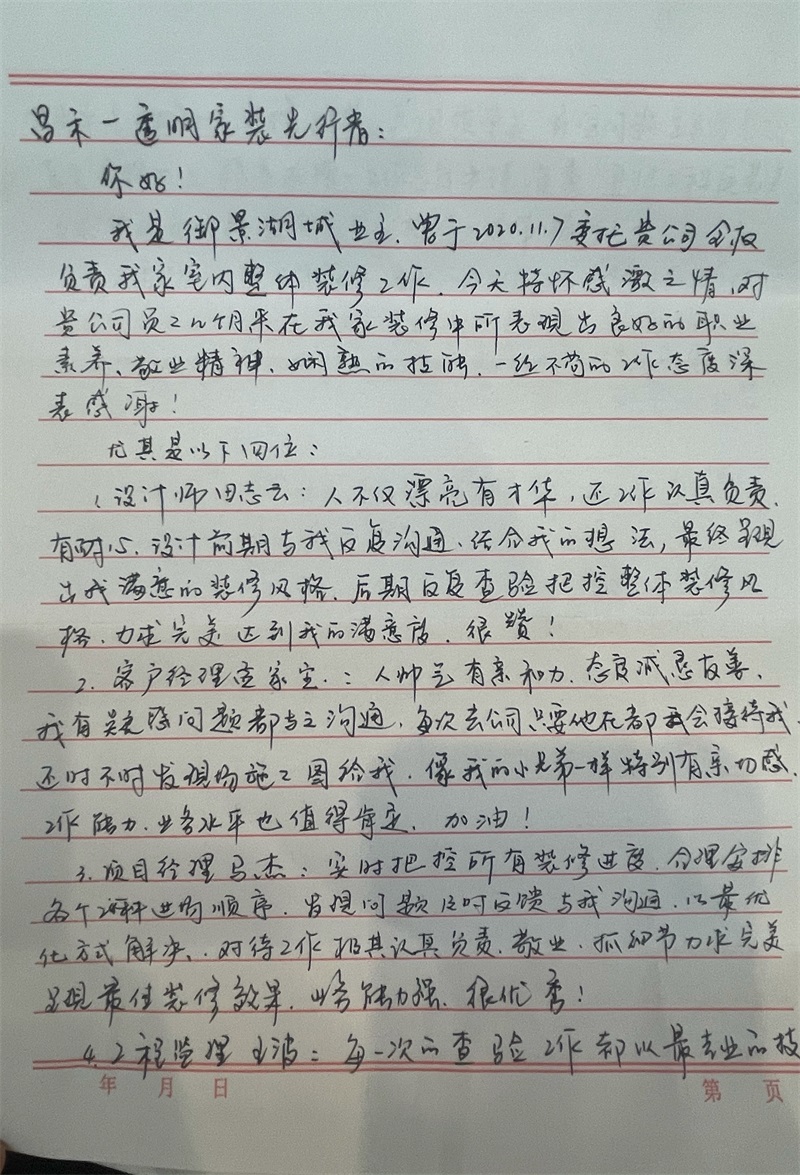 昌禾一透明家装先行者：
你好！
我是御景湖城业主，曾于2020.11.7委托贵公司全权
负责我家室内整体装修工作，今天特怀感激之情，对
贵公司员工几个月来在我家装修中所表现出良好的职业
素养、敬业精神、娴熟的技能，一丝不苟的工作态度深
表感谢！
尤其是以下四位：
1、设计师田志云：人不仅漂亮有才华，还工作认真负责，
有耐心，设计前期与我反复沟通，结合我的想法，最终呈现
出我满意的装修风格，后期反复查验把控整体装修风
格，力求完美达到我的满意度，很赞！
2、客户经理 家宝：人帅气有亲和力，态度诚恳友善，
我有疑惑问题都与之沟通，每次去公司只要他在都会接待我，
还时不时发现场施工图给我，像我的小兄弟一样特别有亲切感，
工作能力、业务水平也值得肯定，加油！
3、项目经理马杰：实时把控所有装修进度，合理安排
各个工种进场顺序，发现问题及时反馈与我沟通，以最优
化方式解决、对待工作极其认真负责、敬业，抓细节力求完美
呈现最佳装修效果，业务能力强，很优秀！
4.工程监理王波：每一次的查验工作都以最专业的技
年 月 日 第 页